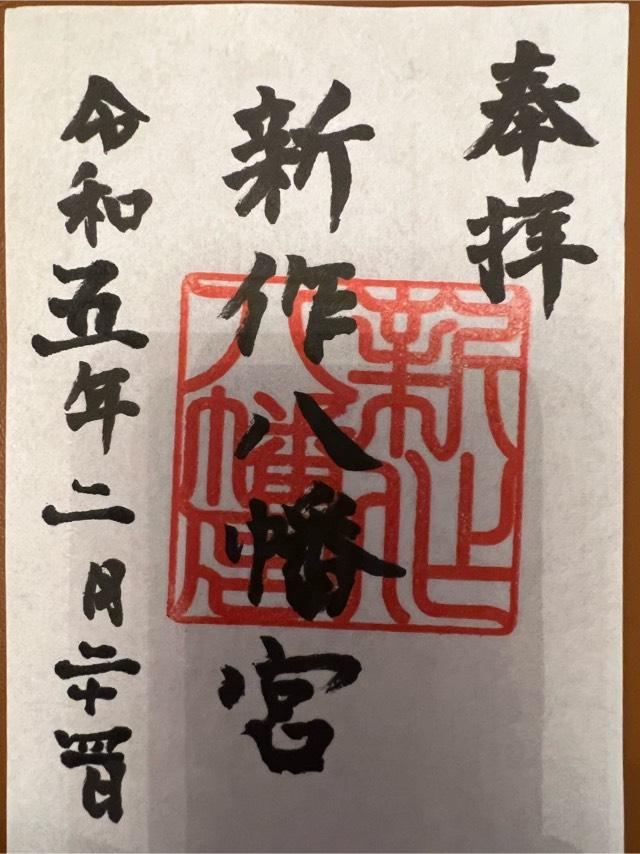 奉拝
新作八幡宮
新作八幡宮
令和五年二月二十四日